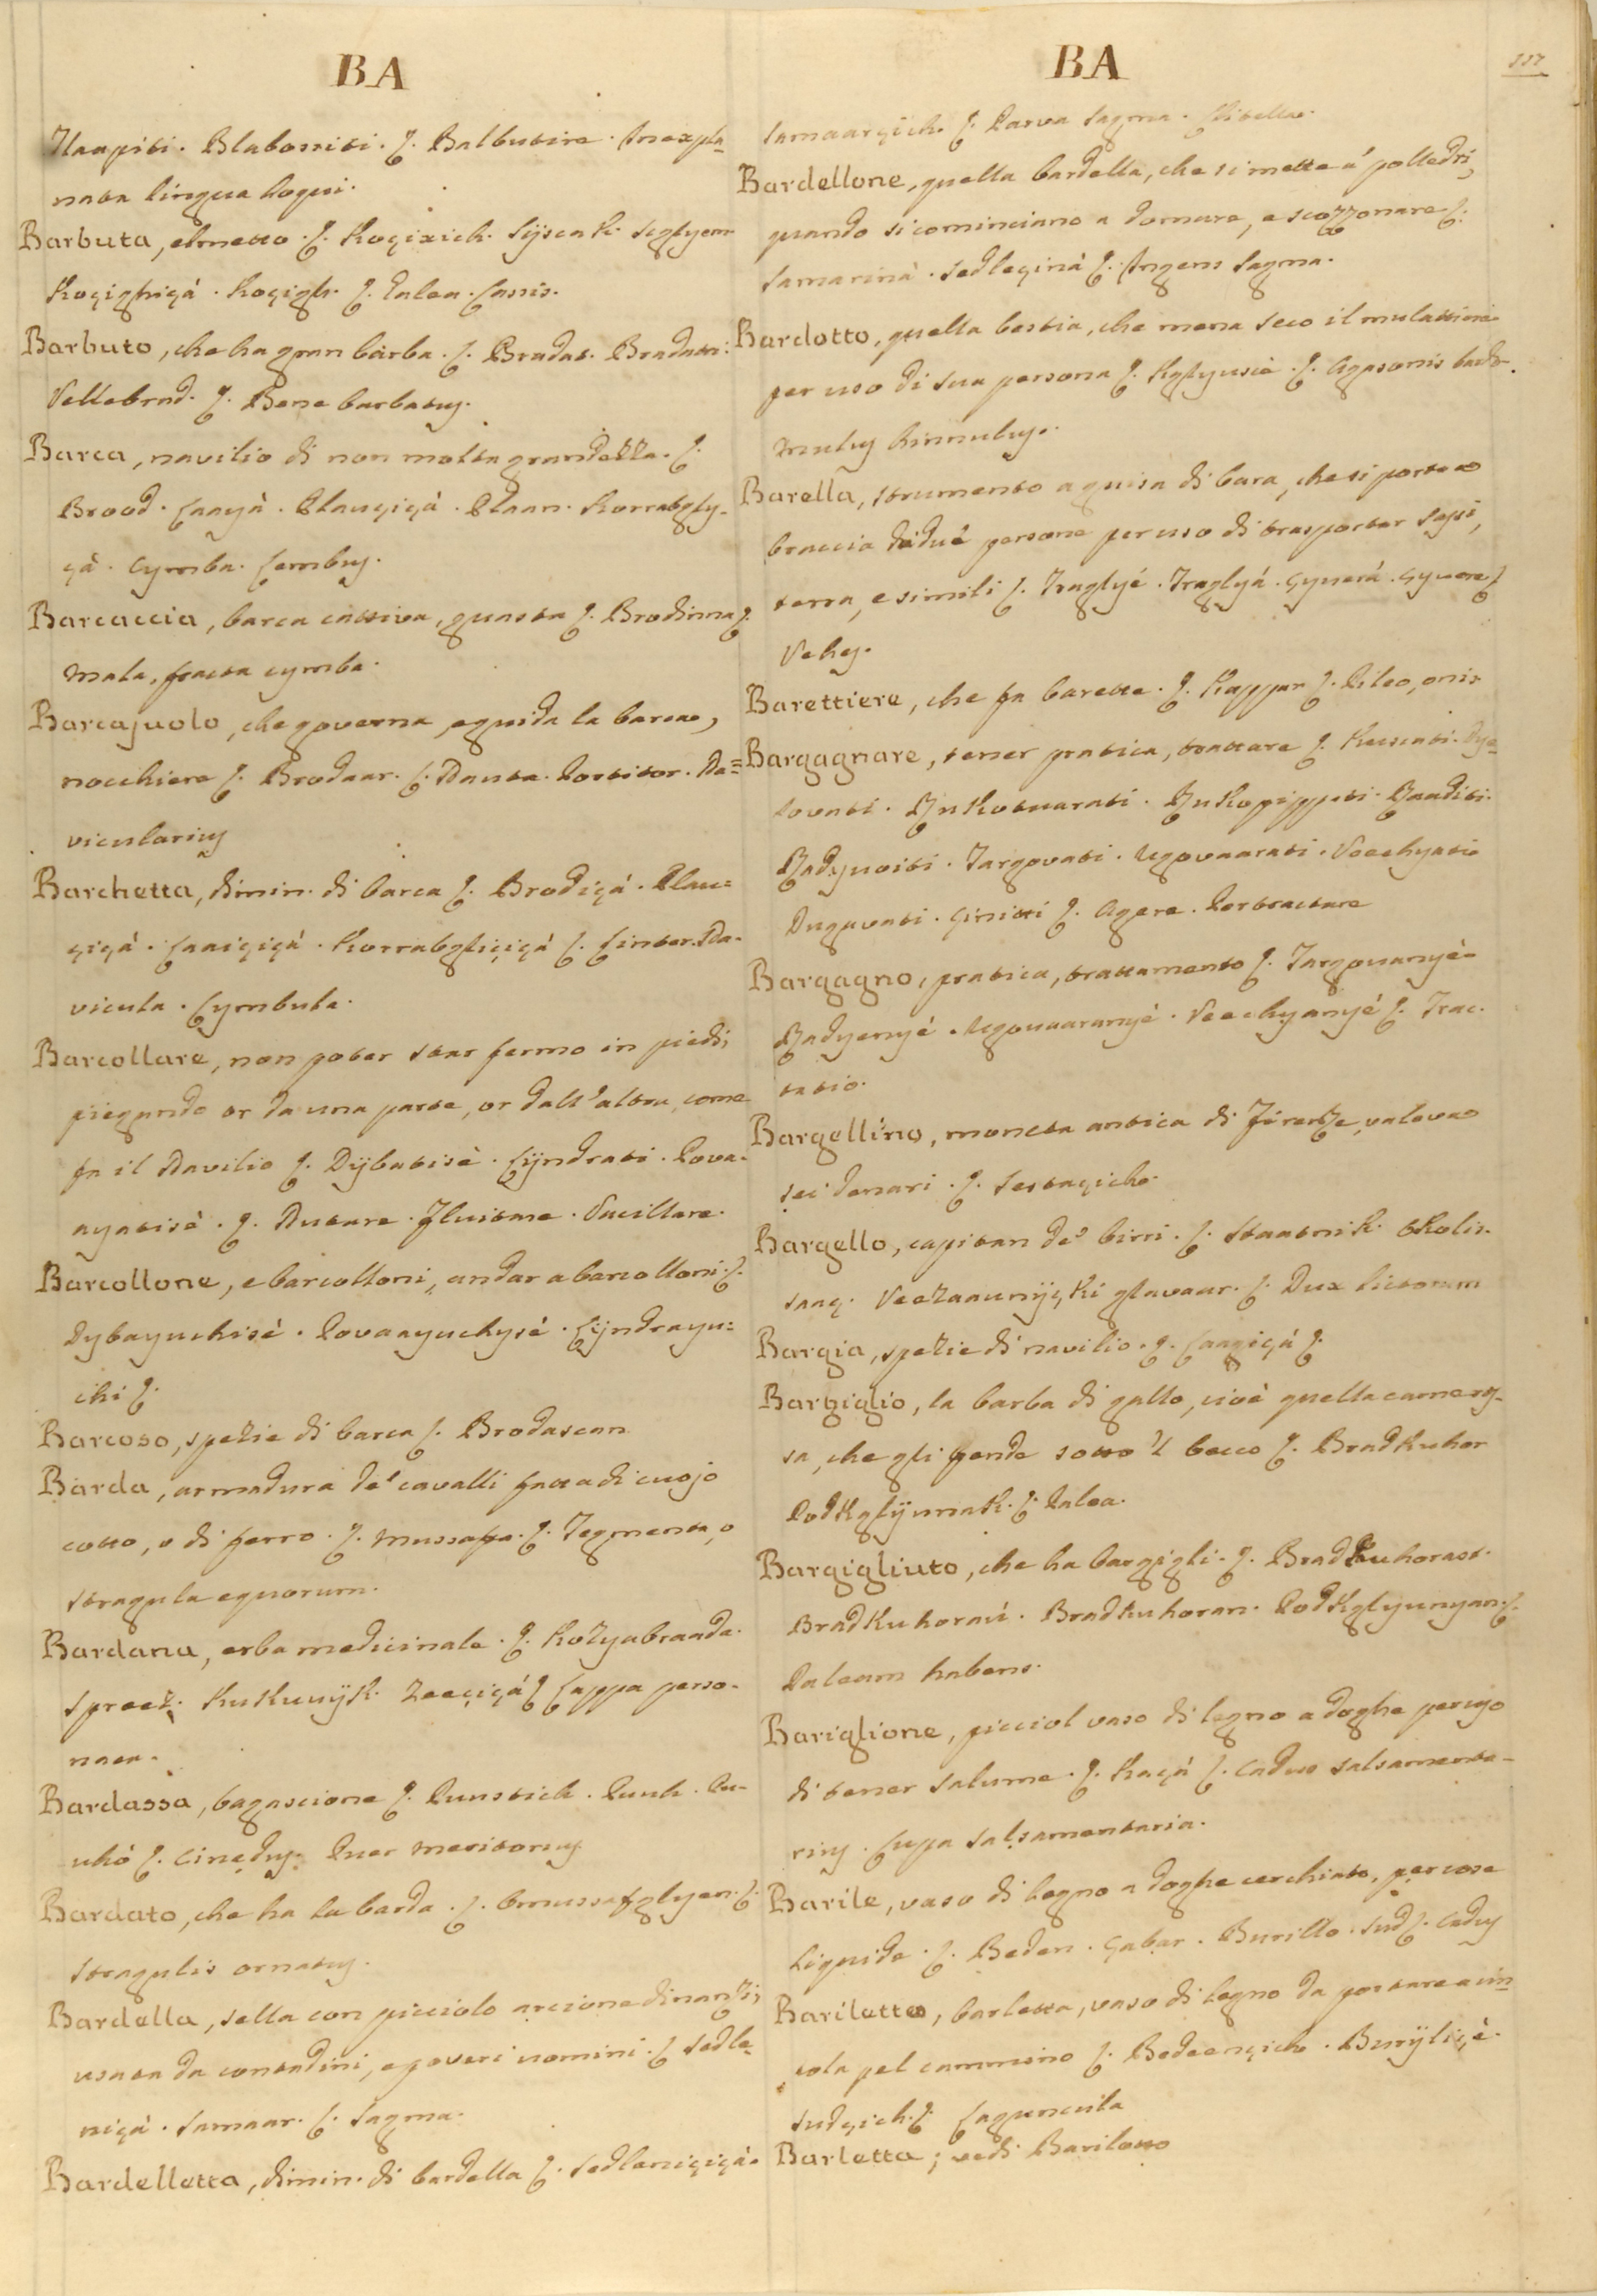 BA
Ilaapiti. Blabossiti. ſ. Balbutire. Inexpla-
nata lingua loqui.
Barbuta, elmetto. ſ. Koçixich. Sijscak. Sctlyem
Koçigtriçá. Koçigtr. ſ. Galea. Cassis.
Barbuto, che ha gran barba. ſ. Bradat. Bradati:
Vellebrad. ſ. Bene barbatus.
Barca, navilio di non molta grandezza. ſ.
Brood. Caayà. Plauçiçà. Plaan. Korrabgly-
çà. Cymba. Cembus.
Barcaccia, barca cattiva, guasta ſ. Brodinna ſ.
Mala, fracta cymba.
Barcajuolo, che governa, e guida la barca,
nocchiere ſ. Brodaar. ſ. Nauta. Portitor. Na=
vicularius
Barchetta, dimin. di barca ſ. Brodiçá. Plau=
çiçá. Caaiçiçá. Korrabgliçiçá ſ. Linter. Na-
vicula. Cymbula.
Barcollare, non poter star fermo in piedi,
piegando or da una parte, or dall'altra, come
fa il Navilio ſ. Dÿbatisè. Cijndrati. Pova-
ayatisè. ſ. Nutare. Fluitare. Vacillare.
Barcollone, e barcolloni, andar a barcolloni. ſ.
Dybayuchisè. Povaayuchysè. Cijndrayu=
chi ſ.
Barcoso, spezie di barca ſ. Brodascan
Barda, armadura de' cavalli fatta di cuojo
cotto, o di ferro. ſ. Mussafa. ſ. Tegmenta, o
stragula equorum.
Bardana, erba medicinale. ſ. Kozyabraada.
Spreez. Kukuvijk. Zeeçiçá ſ Lappa perso-
naea.
Bardassa, bagascione ſ. Puustich. Puuh. Pu-
uhó ſ. Cinedus. Puer meritorius
Bardato, che ha la barda. ſ. Omussafglyen. ſ.
Stragulis ornatus.
Bardella, sella con picciolo arcione dinanzi,
usata da contadini, e poveri uomini. ſ Sedle-
niçá. Samaar. ſ. Sagma.
Bardelletta, dimin. di bardella ſ. Sedleniçiçá.
BA
117
Samaarçich. ſ. Parva Sagma. Clitellae.
Bardellone, quella bardella, che si mette a' polledri,
quando si cominciano a domare, e scozzonare ſ.
Samarinà. Sedleçinà ſ. Ingens Sagma.
Bardotto, quella bestia, che mena seco il mulattiere
per uso di sua persona ſ. Kglyusè. ſ. Agasonis
mulus hinnulus.
Barella, strumento a guisa di bara, che si porta a
braccia da due persone per uso di trasportar sassi,
terra, e simili ſ. Traglyé. Traglyá. Çyverá. Çyvere ſ
Vehes.
Barettiere, che fa barette. ſ. Kappar ſ. Pileo, onis
Bargagnare, tener pratica, trattare ſ. Kusciati. Dye-
lovati. Rukotuarati. Rukopippati. Raaditi.
Radynoiti. Targovati. Ugovaarati. Veechyati
Dugovati. Çiniti ſ. Agere. Pertractare
Bargagno, pratica, trattamento ſ. Targovanyè.
Radyenyé. Ugovaaranyé. Veechyanyé ſ. Trac.
tatio.
Bargellino, moneta antica di Firenze, valeva
sei denari. ſ. Sestaçich.
Bargello, capitan de' birri. ſ. Staatnik. Okolis-
saaç. Veezaaunijçki glavaar. ſ. Dux lictorum
Bargia, spezie di navilio. ſ. Caagiçá ſ.
Bargiglio, la barba di gallo, cioè quella carneg-
sa, che gli pende sotto 'l becco ſ. Bradkuhor
Podkglÿunak. ſ. Palea.
Bargigliuto, che ha bargigli. ſ. Bradkuhorast.
Bradkuhorau. Bradkuhoran. Podkglyunyan. ſ.
Paleam habens.
Bariglione, picciol vaso di legno a doghe per uso
di tener salume. ſ. Kaçá ſ. Cadus salsamenta-
rius. Cupa salsamentaria.
Barile, vaso di legno a doghe cerchiato, per cose
liquide. ſ. Beden. Çabar. Burillo. Sud ſ. Cadus
Bariletto, barletta, vaso di legno da portare a cin-
tola pel cammino ſ. Bedeençich. Burÿliçè.
Sudçich. ſ. Laguncula
Barletta; vedi Bariletto